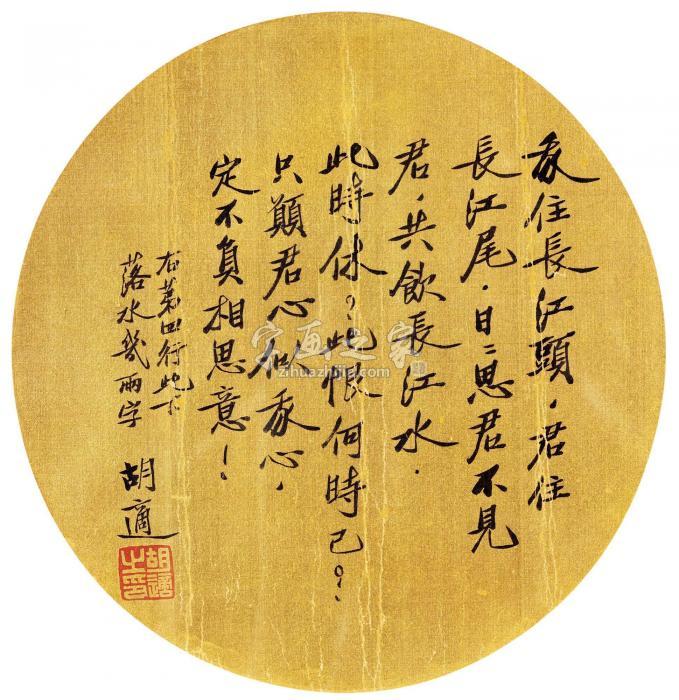 我住長江頭，君住
長江尾．日〻思君不見
君，共飲長江水．
此時休？此恨何時已？
只願君心似我心，
定不負相思意！
右第四行此下
落水幾兩字 胡適
胡適之印
字画之家
zihuazhijia.com